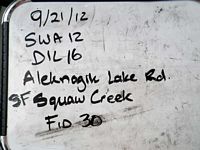 9/21/12
SWA 12
DIL 16
Aleknagik Lake Rd.
SF Squaw Creek
FID 30